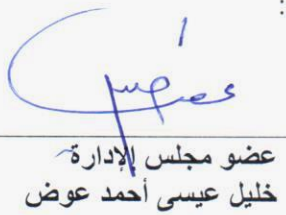 :
عضو مجلس الإدارة
خليل عيسى أحمد عوض